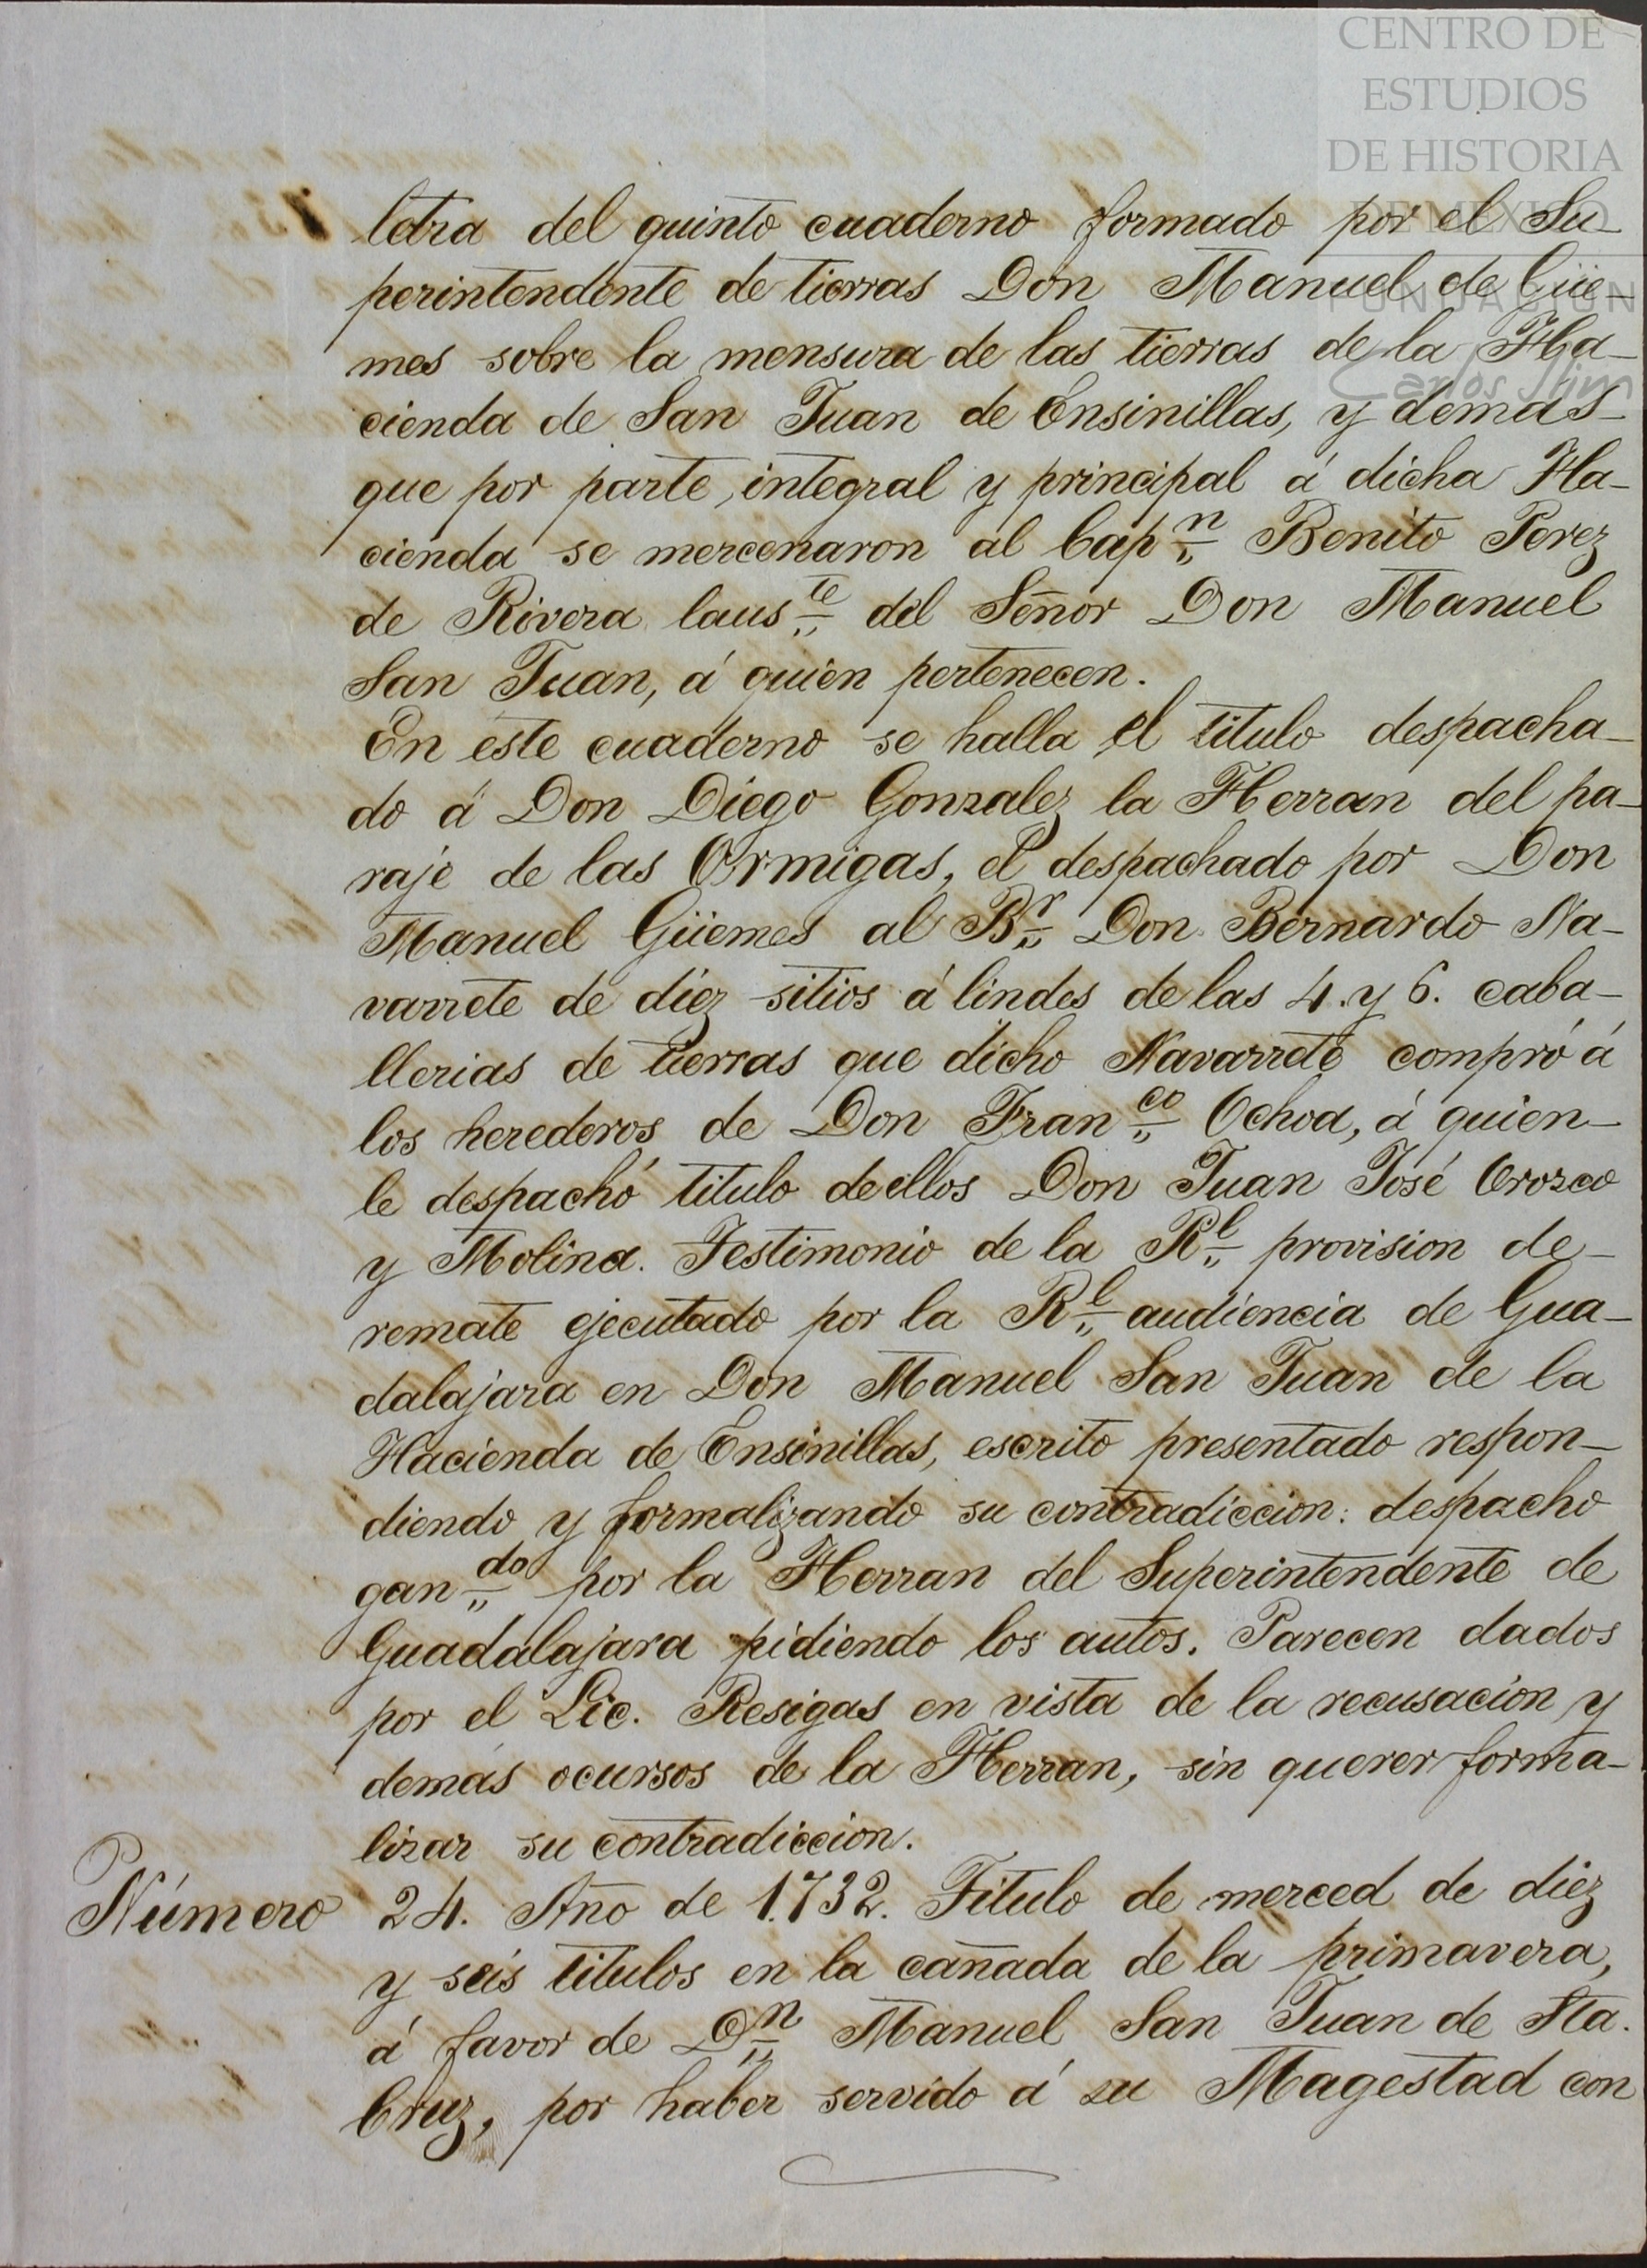 CENTRO DE
ESTUDIOS
DE HISTORIA
DE MEXICO
FUNDACION
Carlos Slim
letra del quinto cuaderno formado por el Su-
perintendente de tierras Don Manuel de Güe-
mes sobre la mensura de las tierras de la Ha-
cienda de San Juan de Ensinillas, y demas
que por parte, integral y principal á dicha Ha-
cienda se mercenaron al Cap.n Benito Perez
de Rivera laus.te del Señor Don Manuel
San Juan, á quien pertenecen.
En este cuaderno se halla el titulo despacha-
do á Don Diego Gonzalez la Herran del pa-
raje de las Ormigas, el despachado por Don
Manuel Güemes al B.r Don Bernardo Na-
varrete de diez sitios á lindes de las 4. y 6. caba-
llerias de tierras que dicho Navarrete compró á
los herederos de Don Fran.co Ochoa, á quien-
le despachó titulo de ellos Don Juan José Orozco
y Molina. Testimonio de la R.l provision de-
remate ejecutado por la R.l audiencia de Gua-
dalajara en Don Manuel San Juan de la
Hacienda de Ensinillas, escrito presentado respon-
diendo y formalizando su contradiccion: despacho
gan.do por la Herran del Superintendente de
Guadalajara pidiendo los autos. Parecen dados
por el Lic. Resigas en vista de la recusacion y
demás ocursos de la Herran, sin querer forma-
lizar su contradiccion.
Número 24. Año de 1.732. Titulo de merced de diez
y seis titulos en la cañada de la primavera,
á favor de D.n Manuel San Juan de Sta.
Cruz, por haber servido á su Magestad con